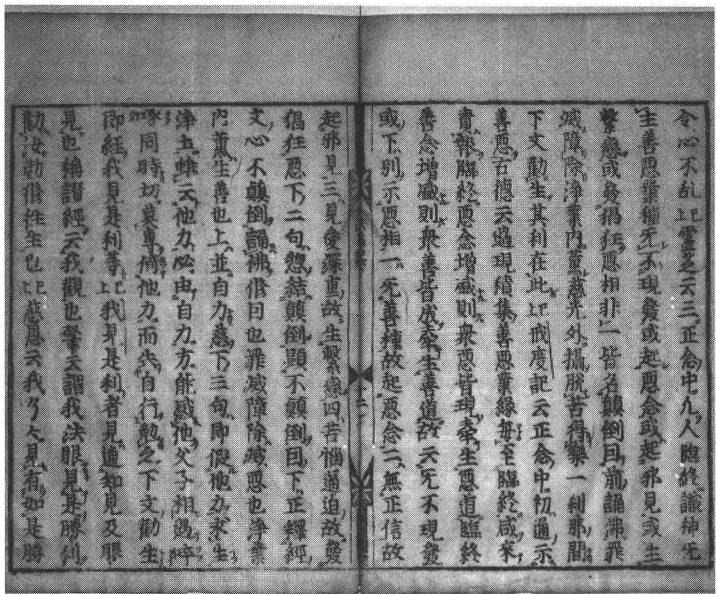 令心不乱已上靈芝云三正念中九人臨終識神无
主善惡業種无不現發或起惡念或起邪見或生
繫戀或發猖狂惡相非一皆名顛倒因前誦佛罪
滅障除淨業內薰慈光外攝脫苦得樂一刹那間
下文勸生其利在此已上戒度記云正念中初通示
善惡古德云過現積集善惡業緣每至臨終咸來
責報臨終惡念增盛則衆惡皆現牽生惡道臨終
善念增盛則衆善皆成牽生善道故云无不現發
或下別示惡相一无善種故起惡念二無正信故
起邪見三見愛深重故生繫戀四苦惱逼迫故發
猖狂惡下二句惣結顛倒顯不顛倒因下正釋經
文心不顛倒誦佛借因也罪滅障除滅惡也淨業
內薰生善也上並自力慈下三句即假他力永生
淨土雖云他力必由自力方能感他父子相遇啐
啄同時切莫專倚他力而失自行勉之下文勸生
即經我見是利等已上我見是利者見通知見及眼
見也稱讚經云我觀也肇云謂我法眼見是勝利
勸汝勤修往生也已上慈恩云我今大見有如是勝